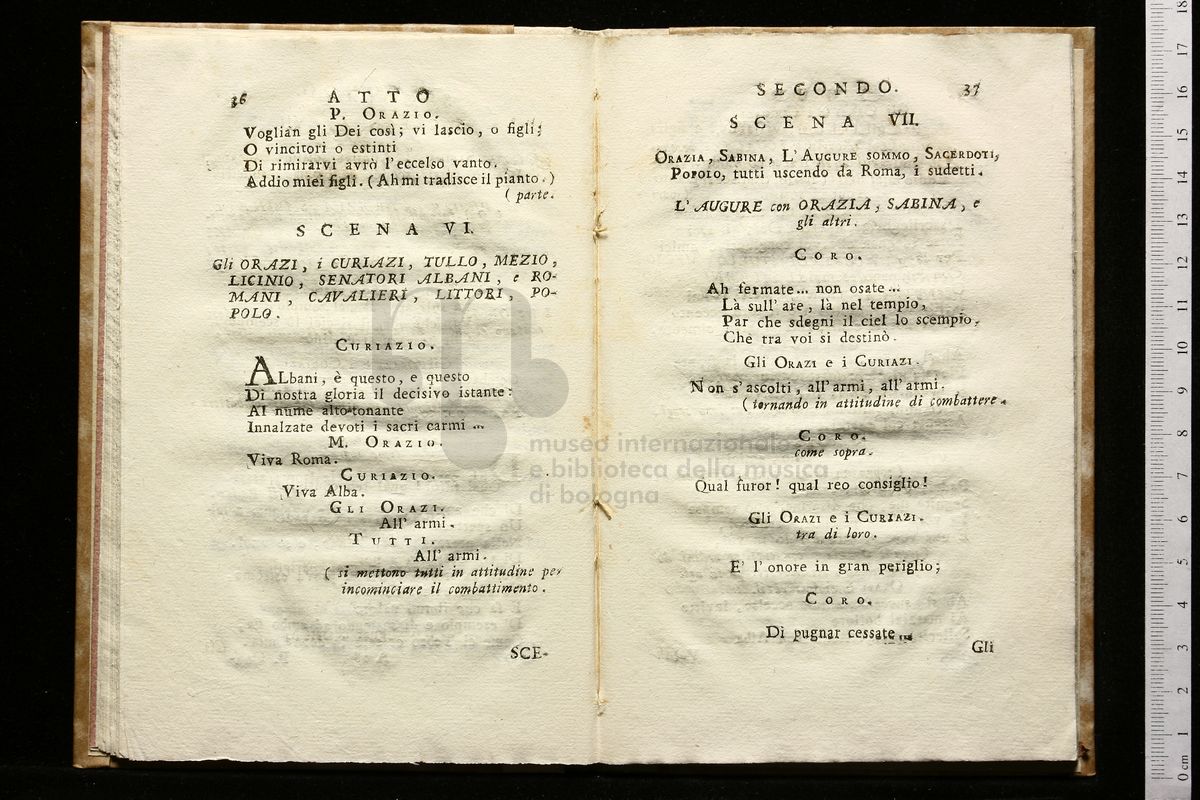 36 ATTO
P. ORAZIO.
Voglian gli Dei così; vi lascio, o figli;
O vincitori o estinti
Di rimirarvi avrò l'eccelso vanto.
Addio miei figli. (Ah mi tradisce il pianto.)
( parte.
SCENA VI.
Gli ORAZI, i CURIAZI, TULLO, MEZIO,
LICINIO, SENATORI ALBANI, e RO-
MANI, CAVALIERI, LITTORI, PO-
POLO.
CURIAZIO.
ALbani, è questo, e questo
Di nostra gloria il decisivo istante:
Al nume altotonante
Innalzate devoti i sacri carmi ...
M. ORAZIO.
Viva Roma.
CURIAZIO.
Viva Alba.
GLI ORAZI.
All' armi.
TUTTI.
All' armi.
( si mettono tutti in attitudine per
incominciare il combattimento.
SCE-
SECONDO. 37
SCENA VII.
ORAZIA, SABINA, L'AUGURE SOMMO, SACERDOTI,
POPOLO, tutti uscendo da Roma, i sudetti.
L'AUGURE con ORAZIA, SABINA, e
gli altri.
CORO.
Ah fermate... non osate...
Là sull' are, là nel tempio,
Par che sdegni il ciel lo scempio,
Che tra voi si destinò.
Gli ORAZI e i CURIAZI.
Non s'ascolti, all'armi, all'armi.
( tornando in attitudine di combattere.
CORO.
come sopra.
Qual furor! qual reo consiglio!
Gli ORAZI e i CURIAZI.
tra di loro.
E' l'onore in gran periglio;
CORO.
Di pugnar cessate...
Gli
museo internazionale
e biblioteca della musica
di bologna
0 cm 1 2 3 4 5 6 7 8 9 10 11 12 13 14 15 16 17 18